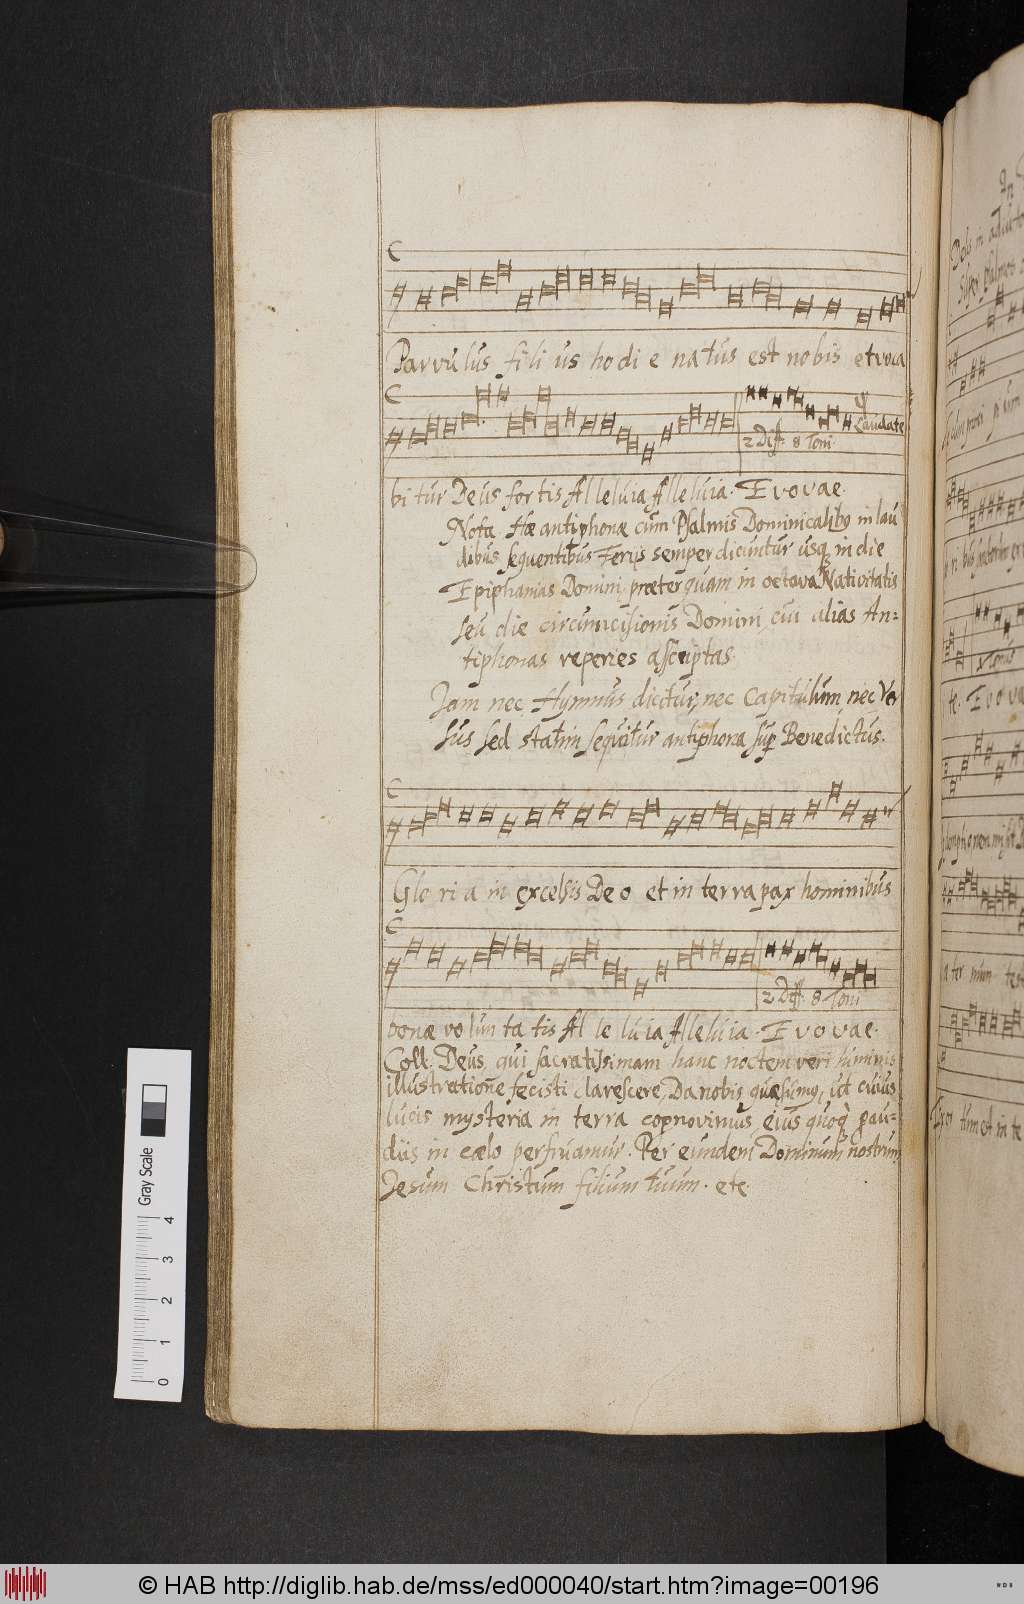 Parvulus fili us ho di e natus est nobis et voca
Laudate
2 Diff. 8 Toni
bi tur Deus for tis Al leluia Alleluia. Evovae.
Nota Hae antiphonae cum Psalmis Dominicalibo in lau
dibus sequentibus Ferijs semper dicuntur usq in die
Epiphanias Domini, praeterquam in octava Nativitatis
seu die circumcisionis Domini, cui alias An=
tiphonas reperies ascriptas.
Jam nec Hymnus dicitur, nec Capitulum nec Ver
sus sed statim sequitur antiphona sup Benedictus.
Glo ri a in excelsis De o et in terra pax hominibus
2 Diff. 8 Toni
bonae volun ta tis Al le luia Alleluia. Evovae.
Coll. Deus, qui sacratissimam hanc noctem veri luminis
illustratione fecisti clarescere, Da nobis quaesumo, ut cuius
lucis mysteria in terra cognovimus, eius quoq gau=
diis in caelo perfruamur. Per eundem Dominum nostrum
Jesum Christum filium tuum. etc.
In
Gray Scale
4
3
2
1
0
© HAB http://diglib.hab.de/mss/ed000040/start.htm?image=00196